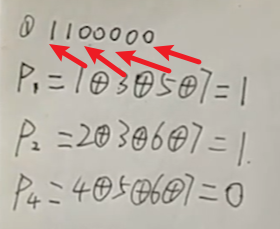 ① 1100000
P₁=1⊕3⊕5⊕7=1
P₂=2⊕3⊕6⊕7=1.
P₄=4⊕5⊕6⊕7=0